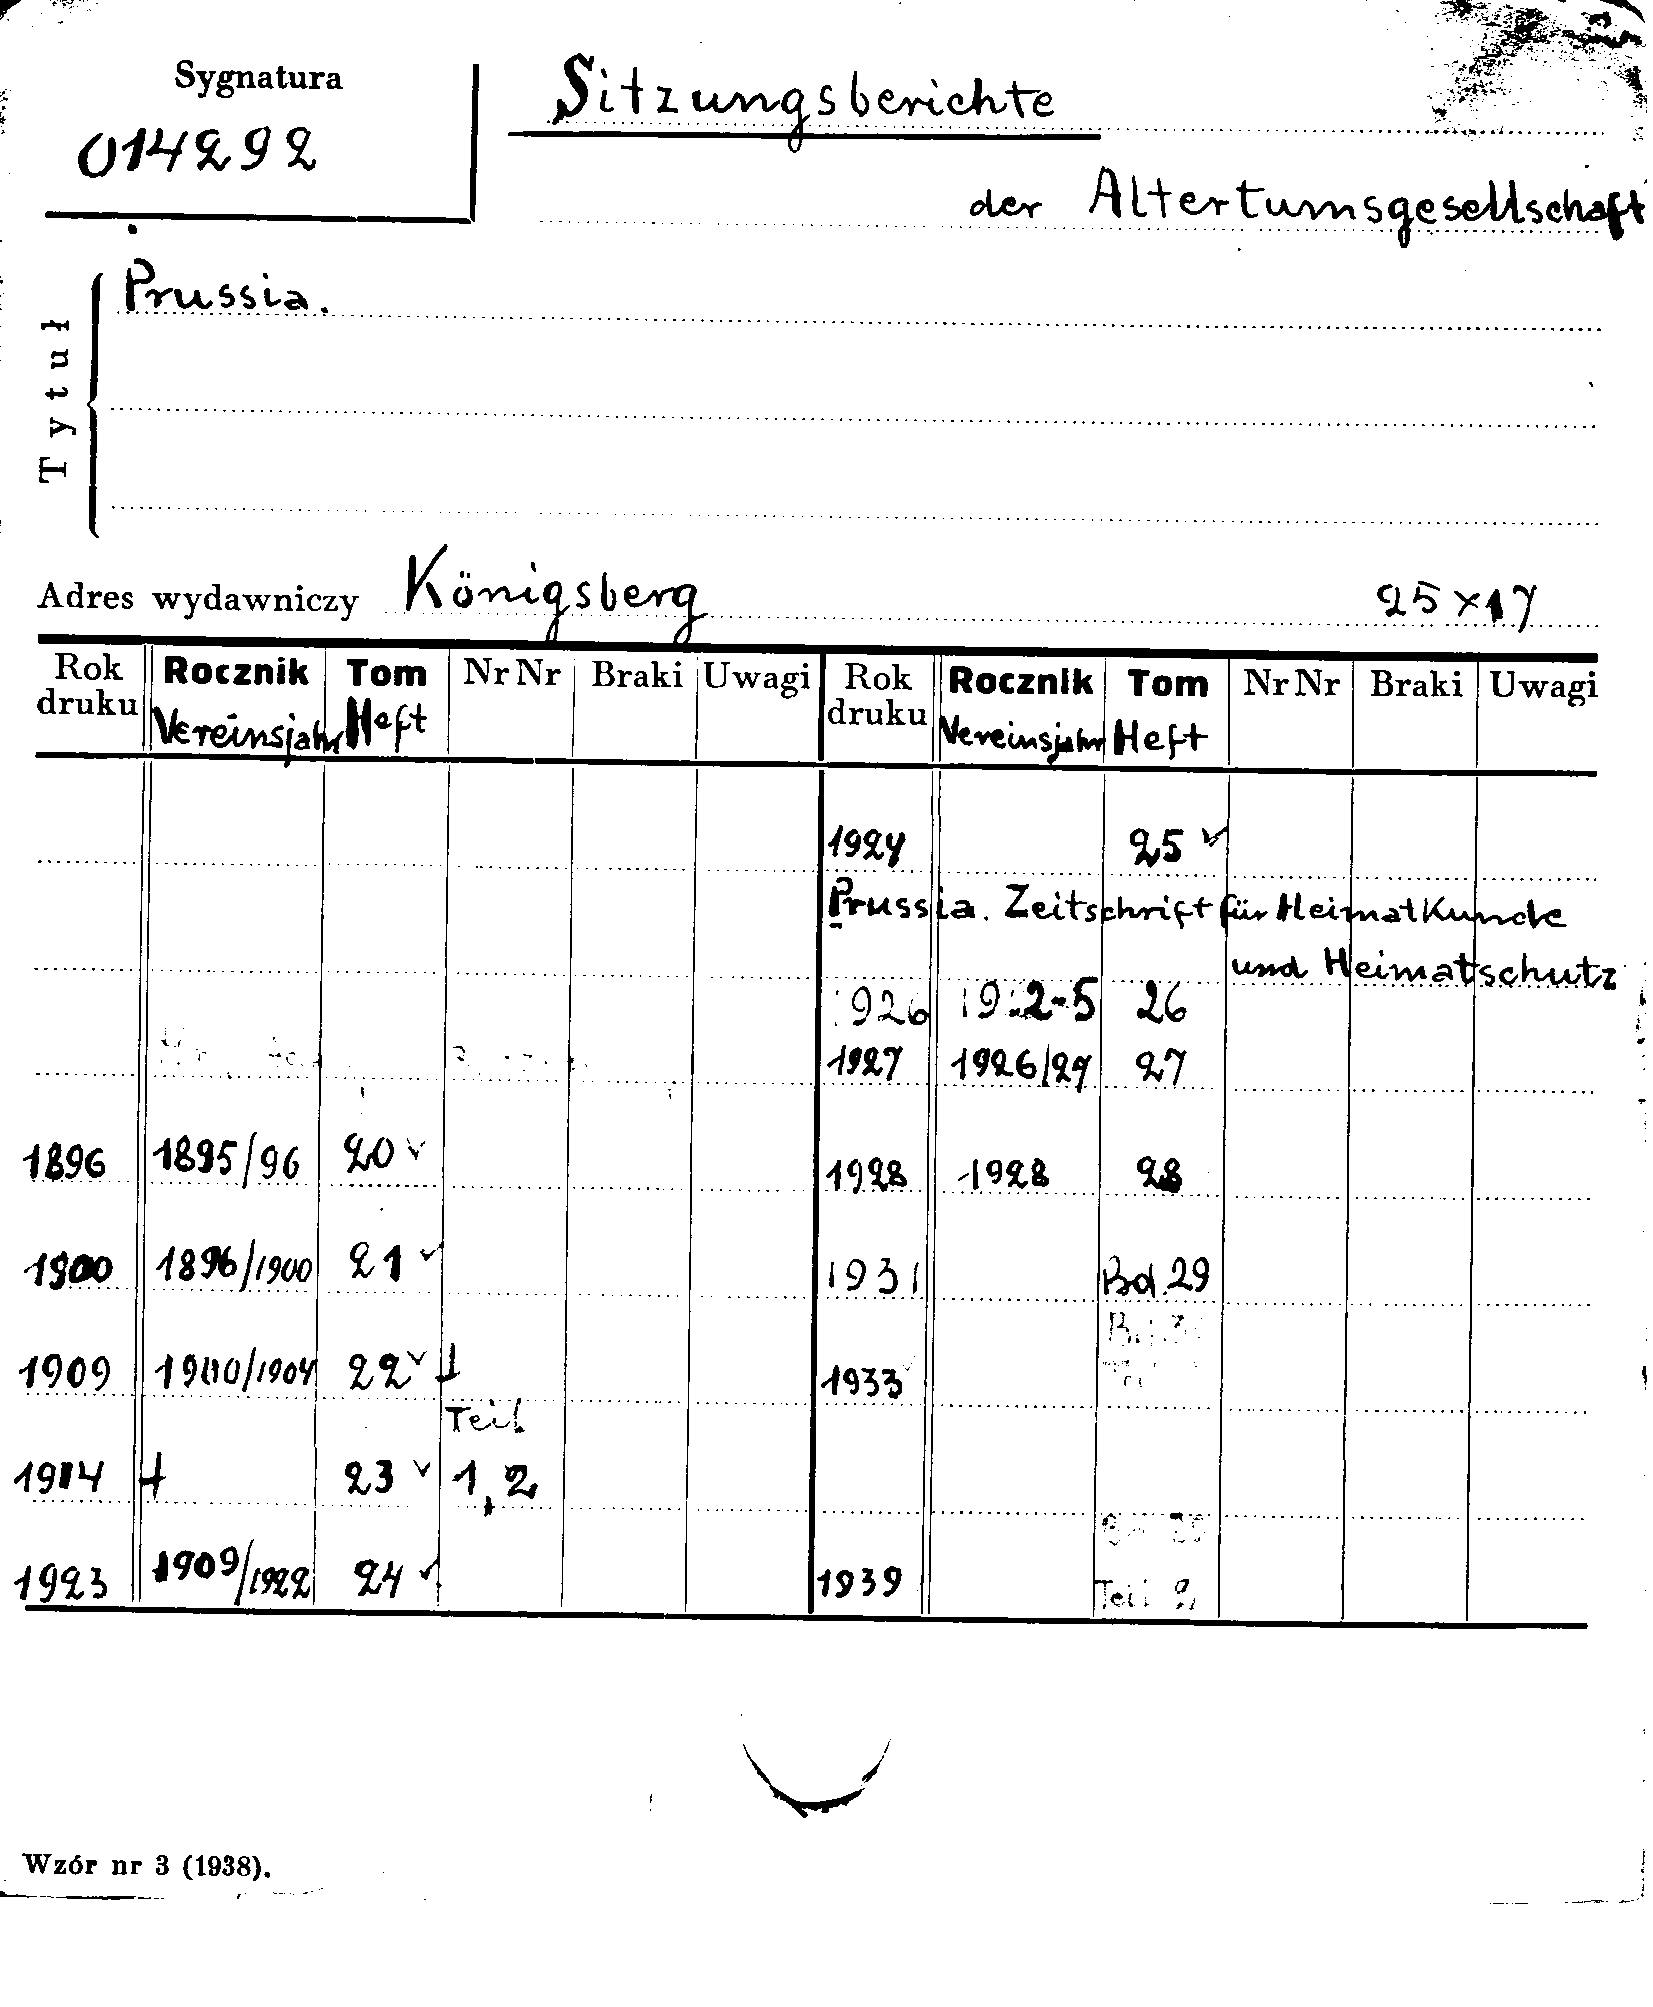 Sygnatura
014292
Sitzungsberichte
der Altertumsgesellschaft
Prussia.
Tytuł
Adres wydawniczy Königsberg 25 x 17
Rok druku Rocznik Tom Nr Nr Braki Uwagi Rok druku Rocznik Tom Nr Nr Braki Uwagi
Vereinsjahr Heft Vereinsjahr Heft
1924 25 ✓
Prussia. Zeitschrift für Heimatkunde
und Heimatschutz
1926 26
1927 1926/27 27
1896 1895/96 20 ✓
1928 1928 28
1900 1896/1900 21 ✓
1931 Bd. 29
1909 1900/1904 22 ✓
1933
Teil
1914 23 ✓ 1, 2
1923 1909/1922 24 ✓
1939 Teil
Wzór nr 3 (1938).